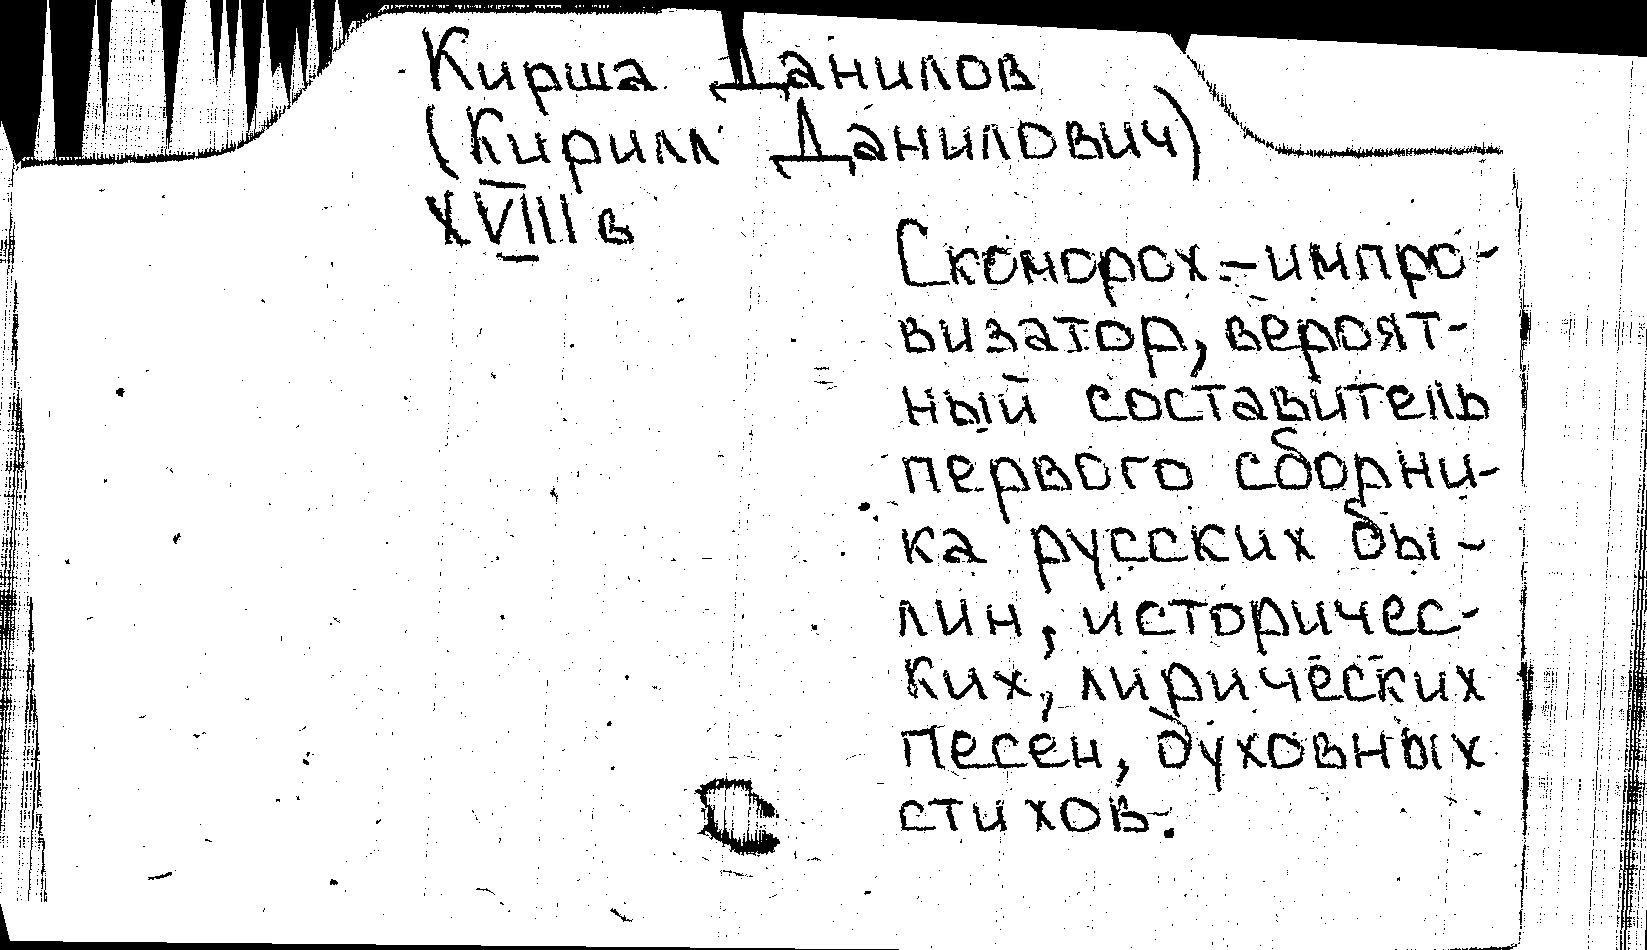 Кирша Данилов
(Кирилл Данилович)
XVIII в
Скоморох-импро-
визатор, вероят-
ный составитель
первого сборни-
ка русских бы-
лин, историчес-
ких, лирических
песен, духовных
стихов.